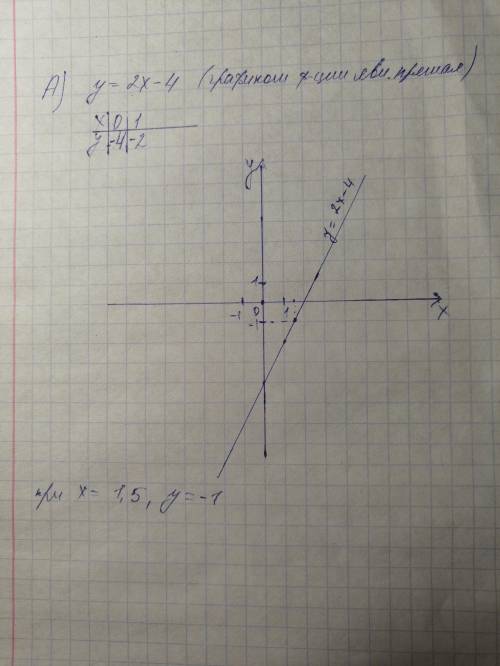 А) y = 2x-4 (графиком ф-ции явл. прямая)
x 0 1
y -4 -2
y
y = 2x-4
1
-1 0 1
-1
x
при x = 1,5, y = -1